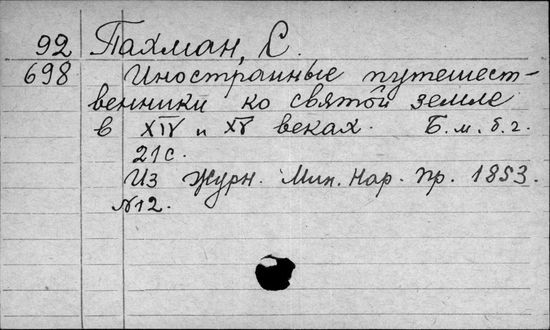 92 Пахман, С.
698 Иностранные путешест-
венники ко святой земле
в XIV и XV веках. Б. м. б. г.
21 с.
Из Журн. Мин. Нар. Пр. 1853.
№12.